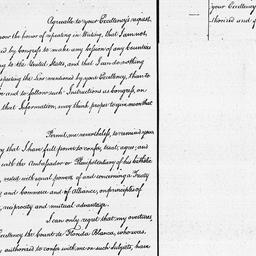 Agreeable to your Excellency's request,
now the honor of repeating in Writing, that I am not,
ed by Congress to make any Cession of any Countries
ng to the United States, and that I can do nothing
specting the Line mentioned by your Excellency, than to
e and to follow such Instructions as Congress, on
that Information, may think proper to give me on that
Permit me nevertheless, to remind your
y that I have full power to confer, treat, agree, and
with the Ambassador or Plenipotentiary of his Catholic
vested with equal powers of and concerning a Treaty
y and Commerce and of Alliance, on principles of
, reciprocity and mutual advantage.
I can only regret that my overtures
xcellency the Count de Florida Blanca, who was
authorized to confer with me on such Subjects, have
your Excellency
thorized and f